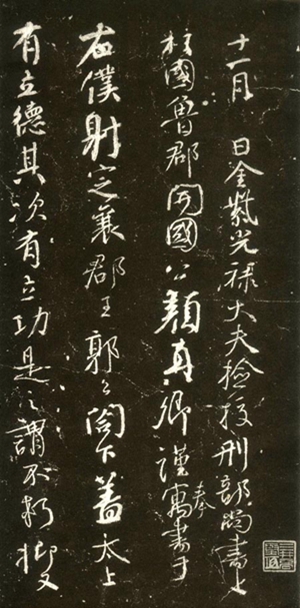 十一月日金紫光禄大夫检挍刑部尚書上
柱國魯郡開國公顔真卿謹奉寓書于
右僕射定襄郡王郭公閤下蓋太上
有立德其次有立功是之謂不朽抑又